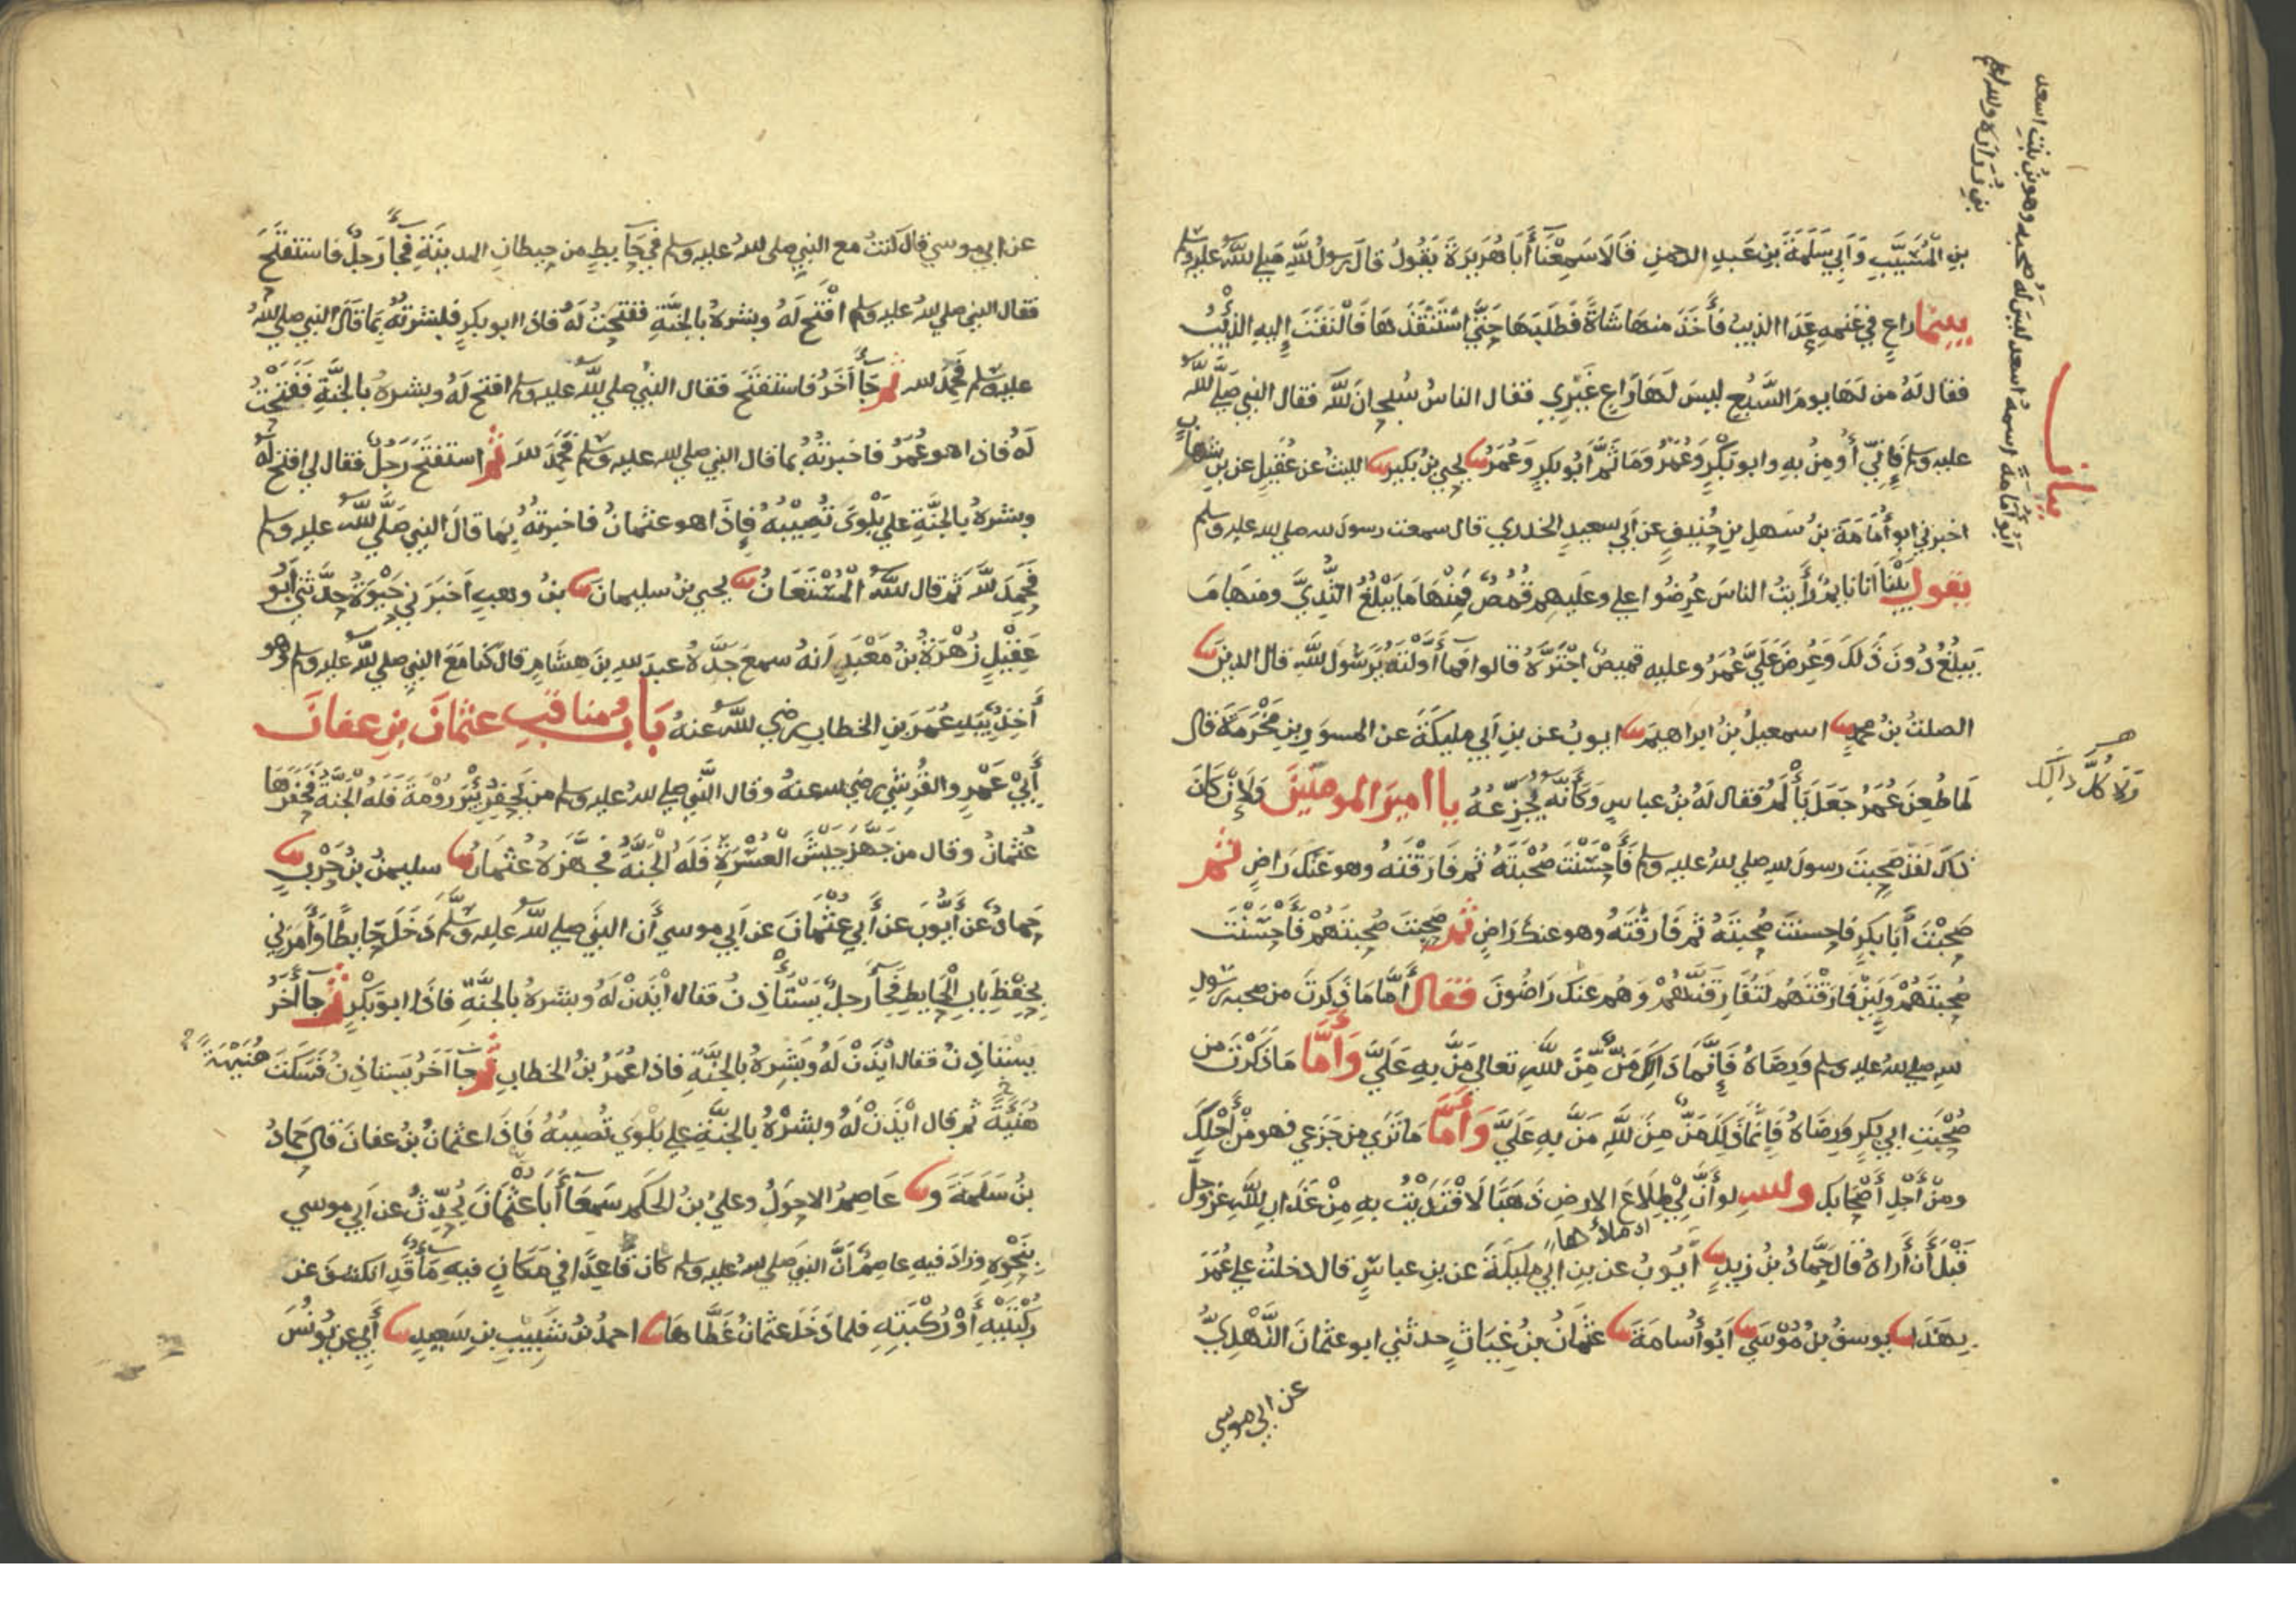 بن المُسَيَّبِ وَأبي سَلَمَةَ بنِ عَبدِ الرحمنِ قَالَا سَمِعْنَا أَبَا هُرَيرَةَ يَقُولُ قالَ رسولُ اللَّهِ صَلي اللَّهُ عليه وسلم
بينما راعٍ في غنمهِ عَدَا الذيبُ فَأَخَذَ منهَا شَاةً فَطَلَبَهَا حَتَّى اسْتَنْقَذَهَا فَالْتَفَتَ إِليهِ الذِّئْبُ
فقال لَهُ من لَهَا يومَ السَّبُعِ ليسَ لَهَا رَاعٍ غَيْرِي فقال الناسُ سُبحانَ اللَّهِ فقال النبي صَلَّي اللَّهُ
عليه وسلم فَإِنِّي أُومِنُ بهِ وابو بَكْرٍ وَعُمَرُ وَمَا ثَمَّ أَبُو بكرٍ وَعُمَرُ نا يحيي بنُ بُكيرٍ نا الليثُ عن عُقَيلٍ عن بنِ شهابٍ
اخبرني ابو أُمَامَةَ بنُ سَهلِ بنِ حُنَيفٍ عن أبي سعيدٍ الخدري قال سمعت رسولَ الله صلي الله عليه وسلم
يقول بَيْنَا انا نايمٌ رأَيتُ الناسَ عُرِضُوا علي وعليهم قُمُصٌ فَمِنْهَا مَا يَبْلُغُ الثُّدِيَّ ومنهَا مَا
يَبلُغُ دُونَ ذَلكَ وَعُرِضَ عَلَيَّ عُمَرُ وعليه قميصٌ اجْتَرَّهُ قالوا فما أَوَّلْتَهُ يَرَسُولَ اللَّهِ قال الدينَ نا
الصلتُ بنُ محمدٍ نا اسمعيلُ بنُ ابراهيمَ نا ايوبُ عن بنِ أبي مليكَةَ عن المسوَرِ بنِ مَخْرَمَةَ قال
لما طُعِنَ عُمَرُ جَعَلَ يَأْلَمُ فقال لَهُ بنُ عباسٍ وَكَأَنَّهُ يُجَزِّعُهُ يا امير المومنين وَلَإِنْ كَانَ
ذَاكَ لَقَدْ صَحِبتَ رسولَ اللهِ صلي اللهُ عليه وسلم فَأَحْسَنْتَ صُحْبَتَهُ ثم فَارَقْتَهُ وهو عَنكَ رَاضٍ ثم
صَحِبْتَ أَبَا بَكرٍ فاحسنتَ صُحبتَهُ ثم فَارَقْتَهُ وهو عنكَ رَاضٍ ثم صَحِبتَ صُحبتَهُمْ فَأَحْسَنْتَ
صُحبتَهُمْ وَلَئِنْ فَارَقْتَهُم لَتُفَارِقَنَّهُمْ وَهم عَنكَ رَاضُونَ فقال أَمَّا مَا ذَكَرتَ من صحبه رسولِ
اللهِ صلي اللهُ عليه وسلم وَرِضَاهُ فَإِنَّمَا ذَاكَ مَنٌّ مِّنَ اللَّهِ تعالي مَنَّ بِهِ عَلَيَّ وَأَمَّا مَا ذَكَرْتَ من
صُحْبَتِ ابي بَكرٍ وَرِضَاهُ فَإِنَّمَا ذَلِكَ مَنٌّ مِنَ اللَّهِ مَنَّ بِهِ عَلَيَّ وَأَمَّا مَا تَرَي من جَزَعِي فهو مِنْ أَجْلِكَ
ومِنْ أَجْلِ أَصْحَابِكَ والله لو أَنَّ لِي طِلَاعَ الارضِ ذَهَبًا لَافْتَدَيْتُ بهِ مِنْ عَذَابِ اللَّهِ عز وجل
قَبْلَ أَن أَرَاهُ قال حَمَّادُ بنُ زيدٍ نا أَيُوبُ عن بنِ ابي مليكَةَ عن بنِ عباسٍ قال دخلتُ علي عُمَرَ
بِهَذَا نا يوسفُ بنُ مُوْسَي نا أَبُو أُسَامَةَ نا عثمَانُ بنُ غِيَاثٍ حدثني ابو عثمانَ النَّهْدِيُّ
عن ابي موسي
بيان
أبُو أُمَامَةَ اسمهُ اسعد ليسَ لَهُ صُحبه وهو بنُ بنتِ اسعد
بنِ زُرَارَه والله اعلم
وَلَا كُلُّ ذالِكَ
اي ملأُها
عن ابي موسي قال كنتُ مع النبي صلي اللهُ عليه وسلم في حَايطٍ من حيطانِ المدينَةِ فَجَأَ رَجلٌ فاستفتَحَ
فقال النبي صلي الله عليه وسلم افْتَح لَهُ وبشرهُ بالجنَّةِ ففتحتُ لَهُ فاذا ابو بكرٍ فبشرتُهُ بِمَا قَالَ النبي صلي اللهُ
عليه وسلم فَحَمِدَ الله ثم جَأَ أَخَرُ فاستفتَحَ فقال النبي صلي اللَّهُ عليه وسلم افتح لَهُ وبشرهُ بالجنَّةِ ففتحتُ
لَهُ فاذا هو عُمَرُ فاخبرتُهُ بما قال النبي صلي الله عليه وسلم فَحَمِدَ الله ثم استفتَحَ رَجلٌ فقال لي افتح لَهُ
وبشرهُ بالجنَّةِ علي بَلْوَى تُصِيْبُهُ فَإِذَا هو عثمانُ فاخبرتهُ بِمَا قالَ النبي صَلَّي اللَّهُ عليه وسلم
فَحَمِدَ اللَّهَ ثم قال اللَّهُ الْمُسْتَعَانُ نا يحيي بنُ سليمانَ نا بنُ وهبٍ أخبَرَنِي حَيْوَةُ حدَّثني أَبُو
عَقِيْلٍ زُهْرَةُ بنُ مَعْبَدٍ أنهُ سمعَ جَدَّهُ عبدَ اللهِ بنَ هِشَامٍ قالَ كُنا مَعَ النبي صلي اللَّهُ عليه وسلم وهو
أَخِذٌ بِيَدِ عُمَرَ بنِ الخطابِ رضي اللَّهُ عنهُ بَابُ مناقبِ عثمَانَ بنِ عفانَ
أَبِيْ عَمْرٍو القُرَشي رضي الله عنهُ وقال النَّبي صلي اللهُ عليه وسلم من يَحفِرْ بِئْرَ رُوْمَةَ فَلَهُ الْجَنَّةُ فَحَفَرَهَا
عُثمانُ وقال من جَهَّزَ جَيْشَ الْعُسْرَةِ فَلَهُ الْجَنَّةُ فجَهَّزَهُ عُثْمَانُ نا سليمنُ بنُ حَرْبٍ نا
حَمادٌ عن أَيُّوبَ عن أَبِي عُثْمَانَ عن أَبي موسي أَن النبي صلي اللَّهُ عليه وسلَّم دَخَلَ حَايطًا وَأَمَرَنِي
بِحِفْظِ بَابِ الْحَايطِ فَجَأَ رجلٌ يَسْتَأْذِنُ فقال ايْذَنْ لَهُ وبشرهُ بالجنَّةِ فاذَا ابو بَكْرٍ ثم جا أَخَرُ
يستاذِنُ فقال ايْذَنْ لَهُ وبَشِرهُ بالجنَّةِ فاذا عُمَرُ بنُ الخطابِ ثم جأ اخَرُ يستاذِنُ فَسَكَتَ هُنَيْهَةً
هُنَيَّةً ثم قال ايْذَنْ لَهُ وبشرْهُ بالجنَّةِ علي بَلْوَي تُصيبُهُ فَإِذَا عثمانُ بنُ عفانَ قال حمادُ
بنُ سَلَمَةَ ونا عَاصِمُ الاحوَلُ وعليُ بنُ الحكَم سَمعَا أَبَا عُثْمَانَ يُحَدِّثُ عن أبي موسي
بِنَحْوِهِ وزادَ فيهِ عاصِمٌ أَنَّ النبي صلي اللهُ عليه وسلم كان قَاعِدًا في مَكَانٍ فيهِ مَأٌ قَدِ انكشفَ عن
رُكْبَتَيْهِ أَوْ رُكْبَتِهِ فلما دَخَلَ عثمانُ غَطَّاهَا نا احمدُ بنُ شَبِيبِ بنِ سَعِيدٍ نا أَبِي عن يُونُسَ